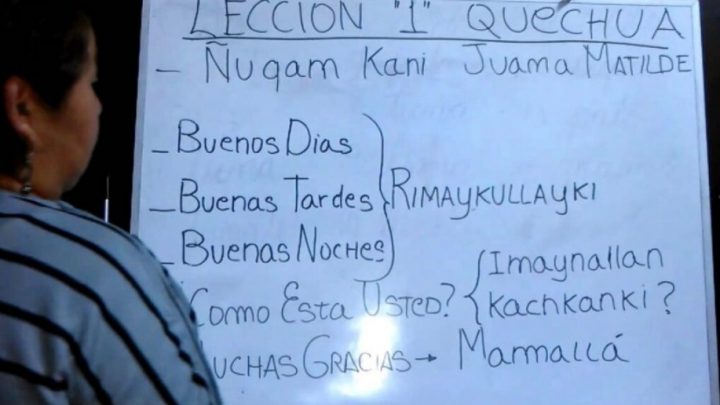 LECCION "1" QUECHUA
– Ñuqam Kani Juama MATILDE
– Buenos Dias
– Buenas Tardes
– Buenas Noches
RIMAYKULLAYKI
Como Esta Usted?
Imaynallan
kachkanki?
UCHAS GRACIAS → Mammallá